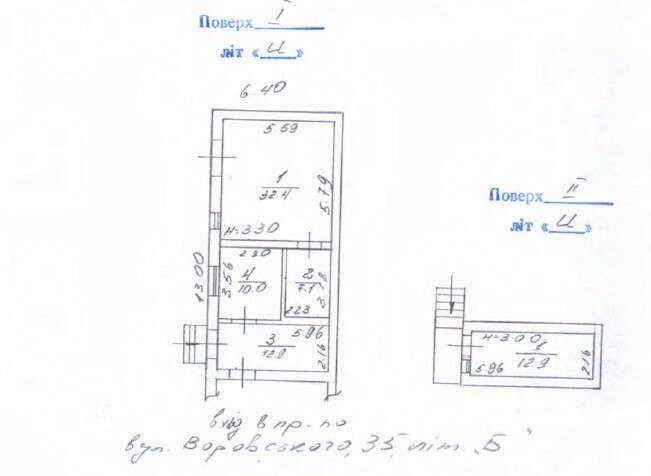 Поверх I
літ «И»
6.40
5.59
1
32.4
5.79
H=3.30
13.00
2.80
3.56
4
10.0
2
7.1
3.18
2.23
3
12.9
5.96
2.16
Поверх II
літ «И»
H=3.00
1
12.9
5.96
2.16
вхід в пр. по
вул. Воровського, 35, літ. „Б"